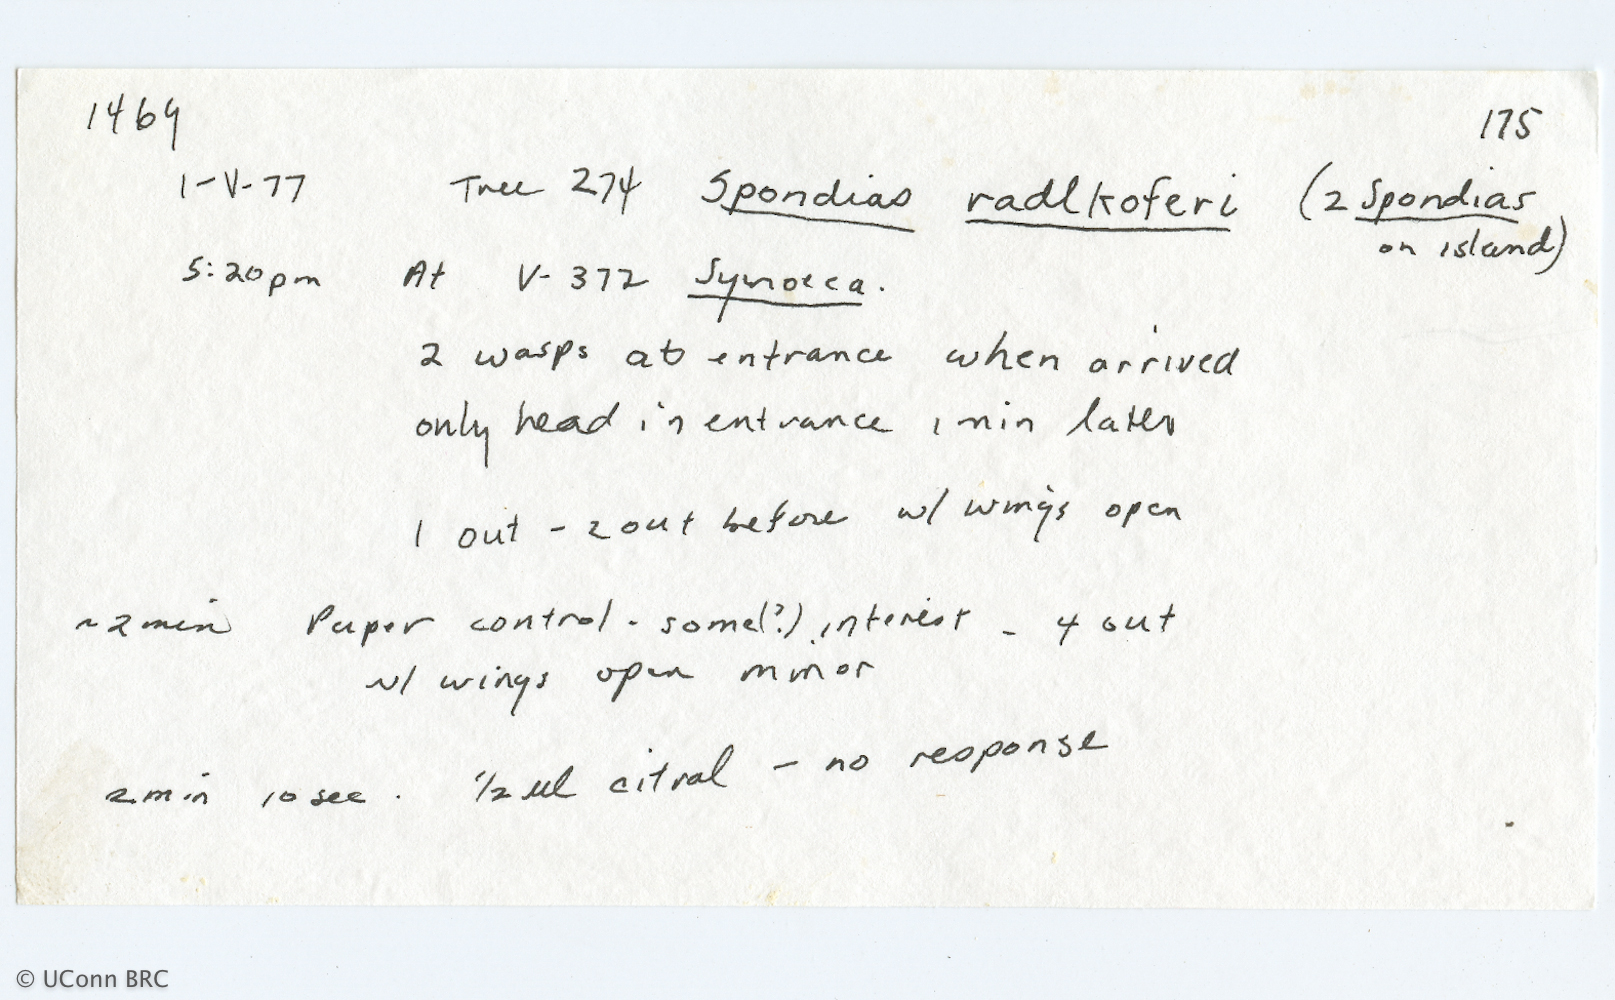 1469 175
1-V-77 Tree 274 Spondias radlkoferi (2 Spondias
on island)
5:20pm At V-372 Synoeca.
2 wasps at entrance when arrived
only head in entrance 1 min later
1 out - 2 out before w/ wings open
~2 min Paper control - some(?) interest - 4 out
w/ wings open minor
2 min 10 sec. 1/2 µl citral - no response
© UConn BRC